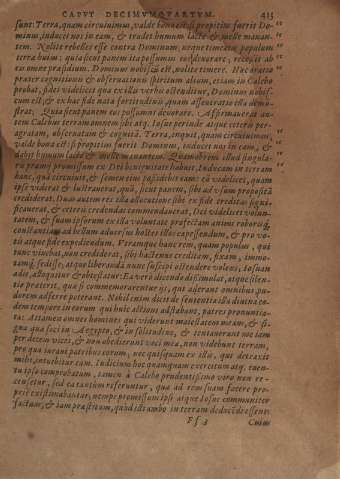 CAPVT DECIMVMQVARTVM. 415
sunt: Terra, quam circuiuimus, valde bona est: si propitius fuerit Do-
minus, inducet nos in eam, & tradet humum lacte & melle manan-
tem. Nolite rebelles esse contra Dominum, neque timeatis populum
terræ huius: quia sicut panem ita possumus eos deuorare, recessit ab
eis omne præsidium. Dominus nobiscum est, nolite timere. Hæc oratio
præter cognitionem & obseruationem spiritum alium, etiam in Calebo
probat, fidei videlicet qua ex illis verbis ostenditur, Dominus nobis-
cum est; & ex hac fide nata fortitudinis quam asseueratio illa demon-
strat, Quia sicut panem eos possumus deuorare. Affirmauerat au-
tem Calebus terram omnem
peragratam, obseruatam & cognitam. Terra, inquit, quam circuiuimus,
valde bona est: si propitius fuerit Dominus, inducet nos in eam, &
dabit humum lacte & melle manantem. Quamobrem illud singula-
re præmij promissum ex Dei benignitate habuit. Inducam in terram
hanc, quam circuiuit, & semen eius possidebit eam: eo videlicet, quam
ipse viderat & lustrauerat, quam, sicut panem, sibi ad vsum propositam
crediderat. Duas autem res illa allocutione sibi ex fide creditas signi-
ficauerat, & ceteris credendas commendauerat, Dei videlicet volun-
tatem, & suam ipsorum ex illa voluntate profectam animi roboris
constantiam ad bellum aduersus hostes illos capessendum, & pro vo-
tis atque fide expediendum. Vtramque hanc rem, quam populus, qui
tunc viuebat, non crediderat, sibi hactenus creditam, fixam, immo-
tamque sedisse, atque liberanda nunc suscipi ostendere volens, Iosuam
adit, alloquitur & obtestatur: Ea vero dicendi dissimulat, atque silen-
tio præterit, quæ si commemorarentur iis, qui aderant omnibus, pu-
dorem afferre poterant. Nihil enim dicit de sententia illa diuina eo-
dem tempore in eorum qui huic actioni adstabant, patres pronuntia-
ta: Attamen omnes homines qui viderunt maiestatem meam, & si-
gna quæ feci in Aegypto, & in solitudine, & tentauerunt me iam
per decem vices, & non obedierunt voci meæ, non videbunt terram,
pro qua iuraui patribus eorum, nec quisquam ex illis, qui detraxit
mihi, intuebitur eam. Iudicium hoc quamquam exercitum atque euen-
tu ipso comprobatum, tamen à Calebo prudentissimo viro non re-
censetur, sed ea tantum referuntur, quæ ad rem suam facere pro-
priè existimabantur, nempe promissum ipsi atque Iosuæ communiter
factum, & iam præstitum, quod ist ambo in terram deducendi essent:
Ff 3 Cuius